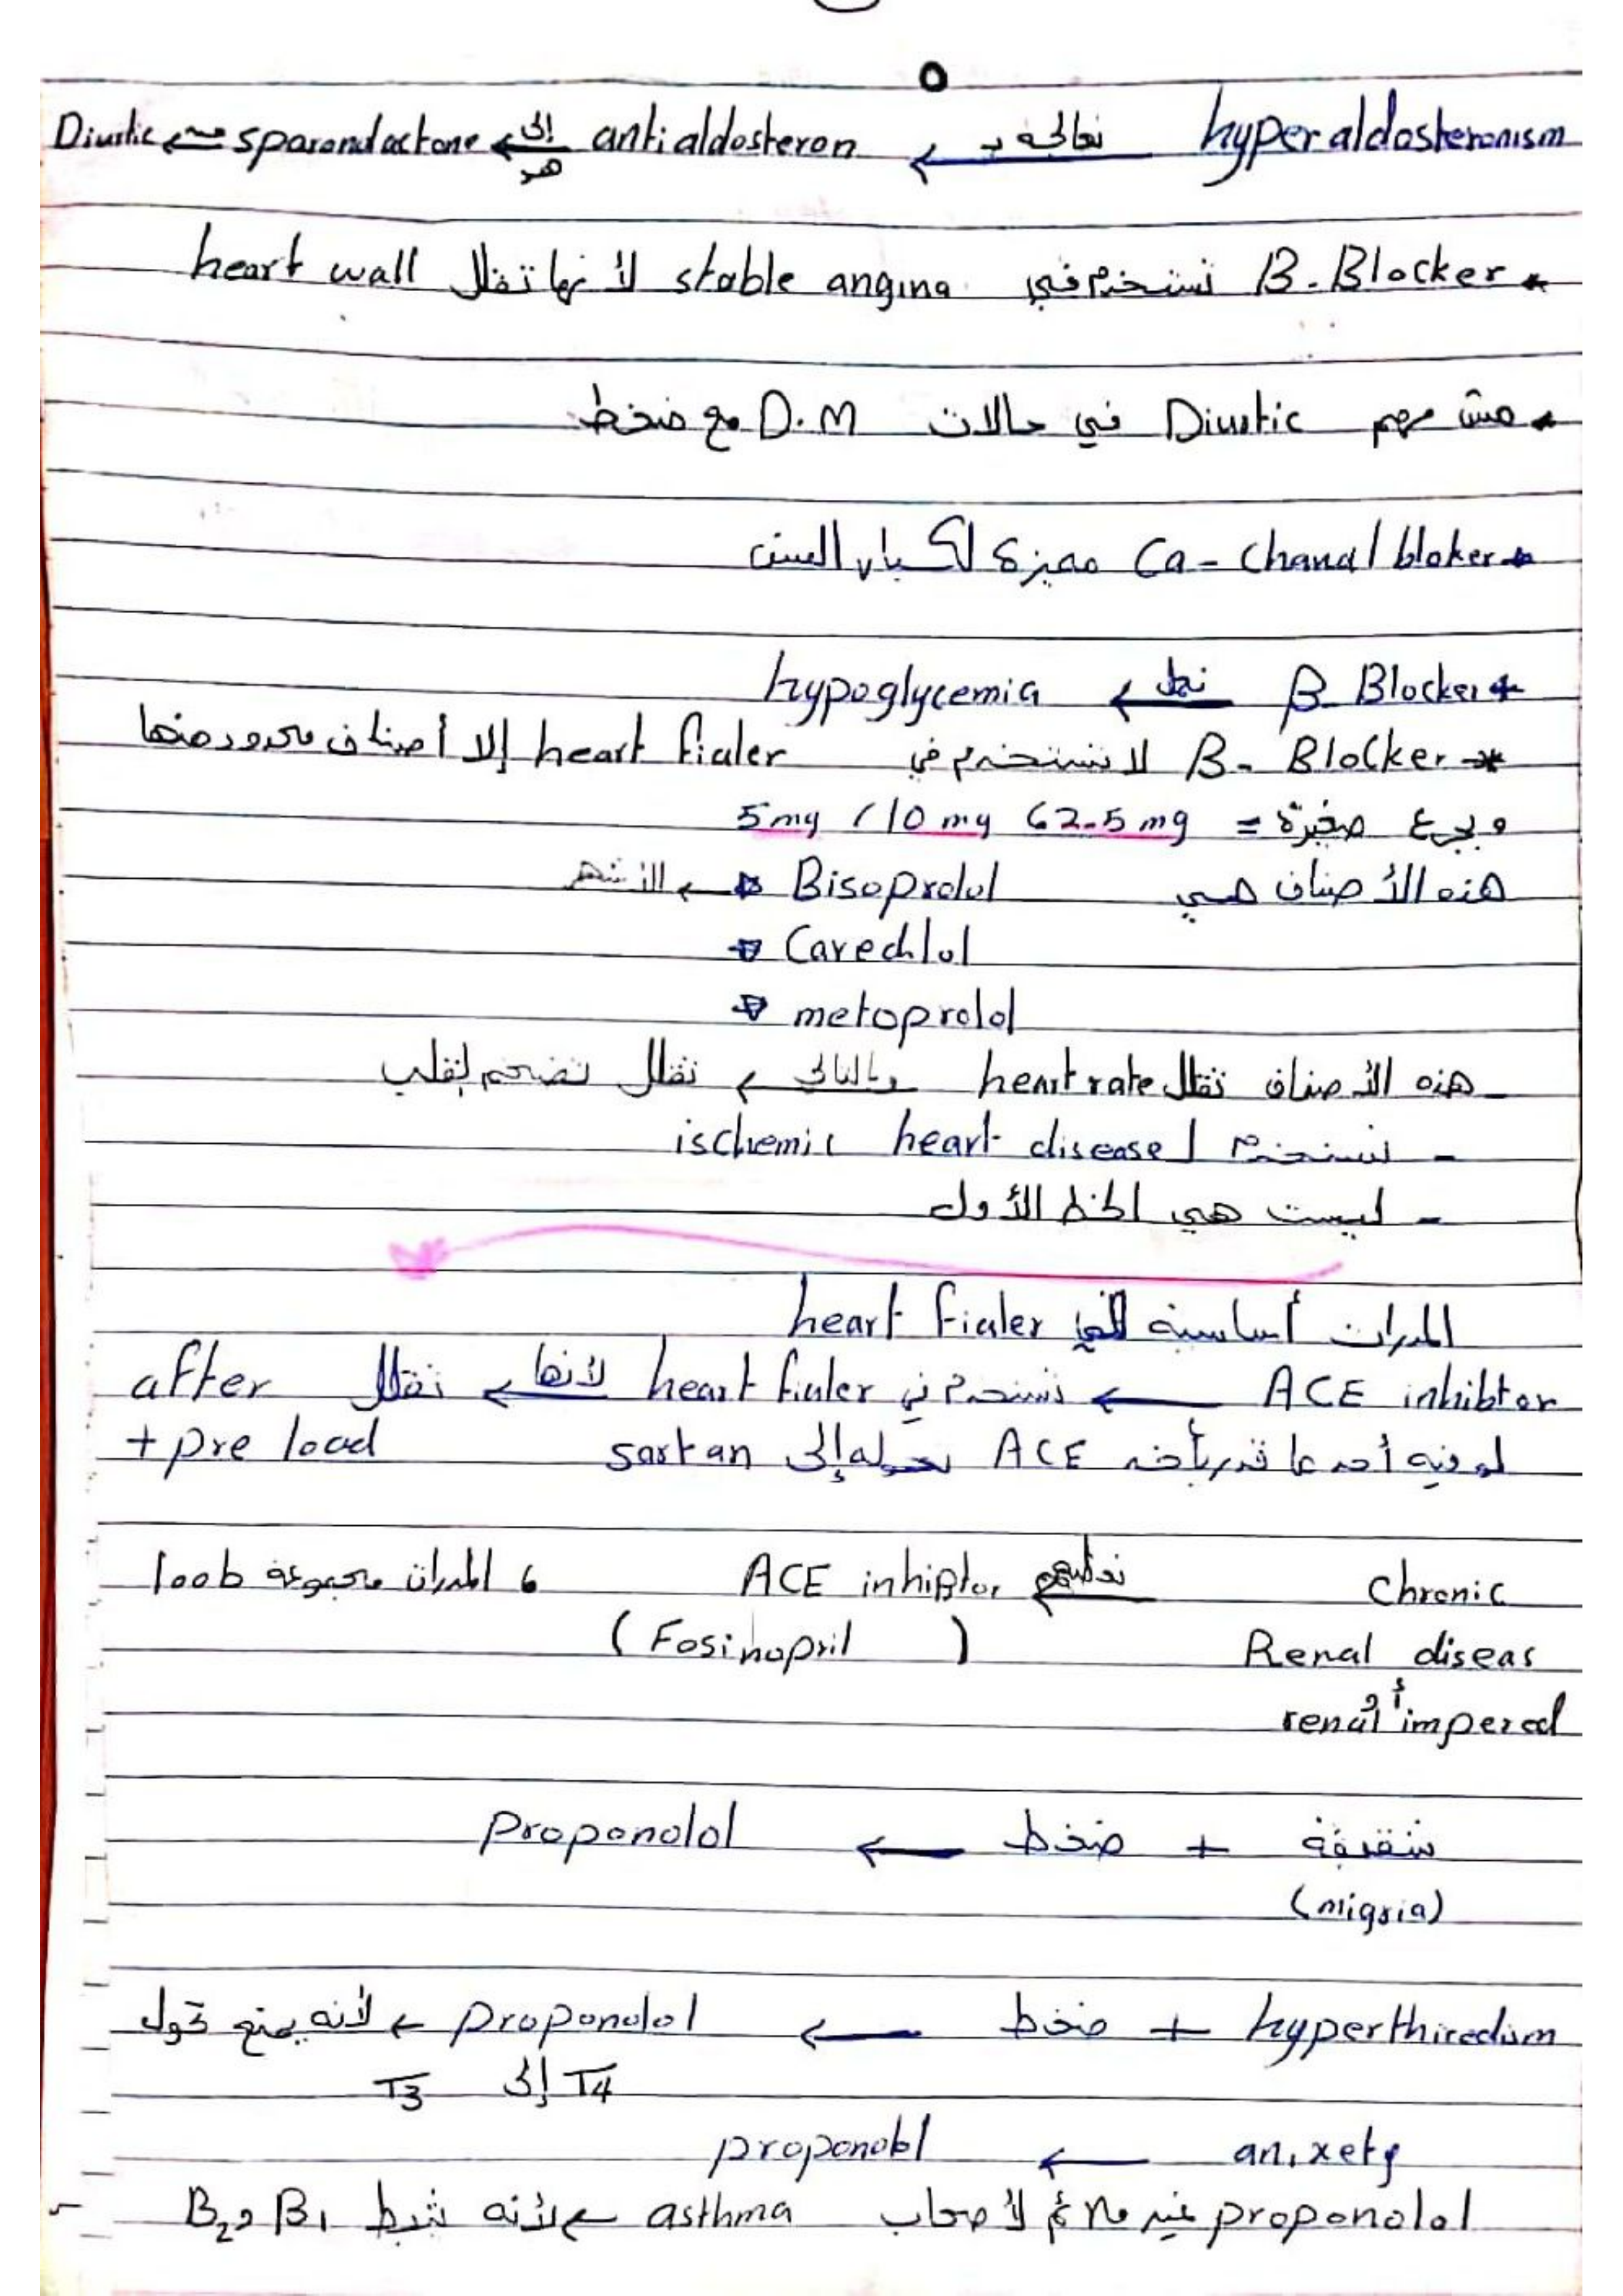 hyperaldosteronism نعالجه بـ ← antialdosteron إلى هو ← sparondactone ← Diustic
* B-Blocker تستخدم في stable angina لأنها تقلل heart wall
* مش مهم Diustic في حالات D.M مع ضغط
* Ca-chanal bloker مميزة لكبار السن
* β-Blocker ← hypoglycemia
* B-Blocker لا تستخدم في heart fialer إلا أصناف محدود منها
وبجرع صغيرة = 2.5mg ، 10mg ، 5mg
هذه الأصناف هي Bisoprolol ← الأشهر
Caredilol
metoprolol
- هذه الأصناف تقلل heart rate وبالتالي ← تقلل تضخم القلب
- تستخدم ل ischemic heart disease
- ليست هي الخط الأول
المدرات أساسية في heart fialer
ACE inhibtor ← تستخدم في heart fialer لأنها ← تقلل after
+ pre load
لو فيه أحد ما قدر يأخذ ACE نحوله إلى sartan
Chronic نعطيهم ACE inhibtor ، المدرات مجموعة loob
Renal diseas (Fosinopril)
أو renal impered
شقيقة + ضغط ← proponolol
(migria)
hyperthiredism + ضغط ← proponolol ← لأنه يمنع تحول
T4 إلى T3
anixety ← proponolol
proponolol غير ملائم لأصحاب asthma لأنه يثبط B1 و B2